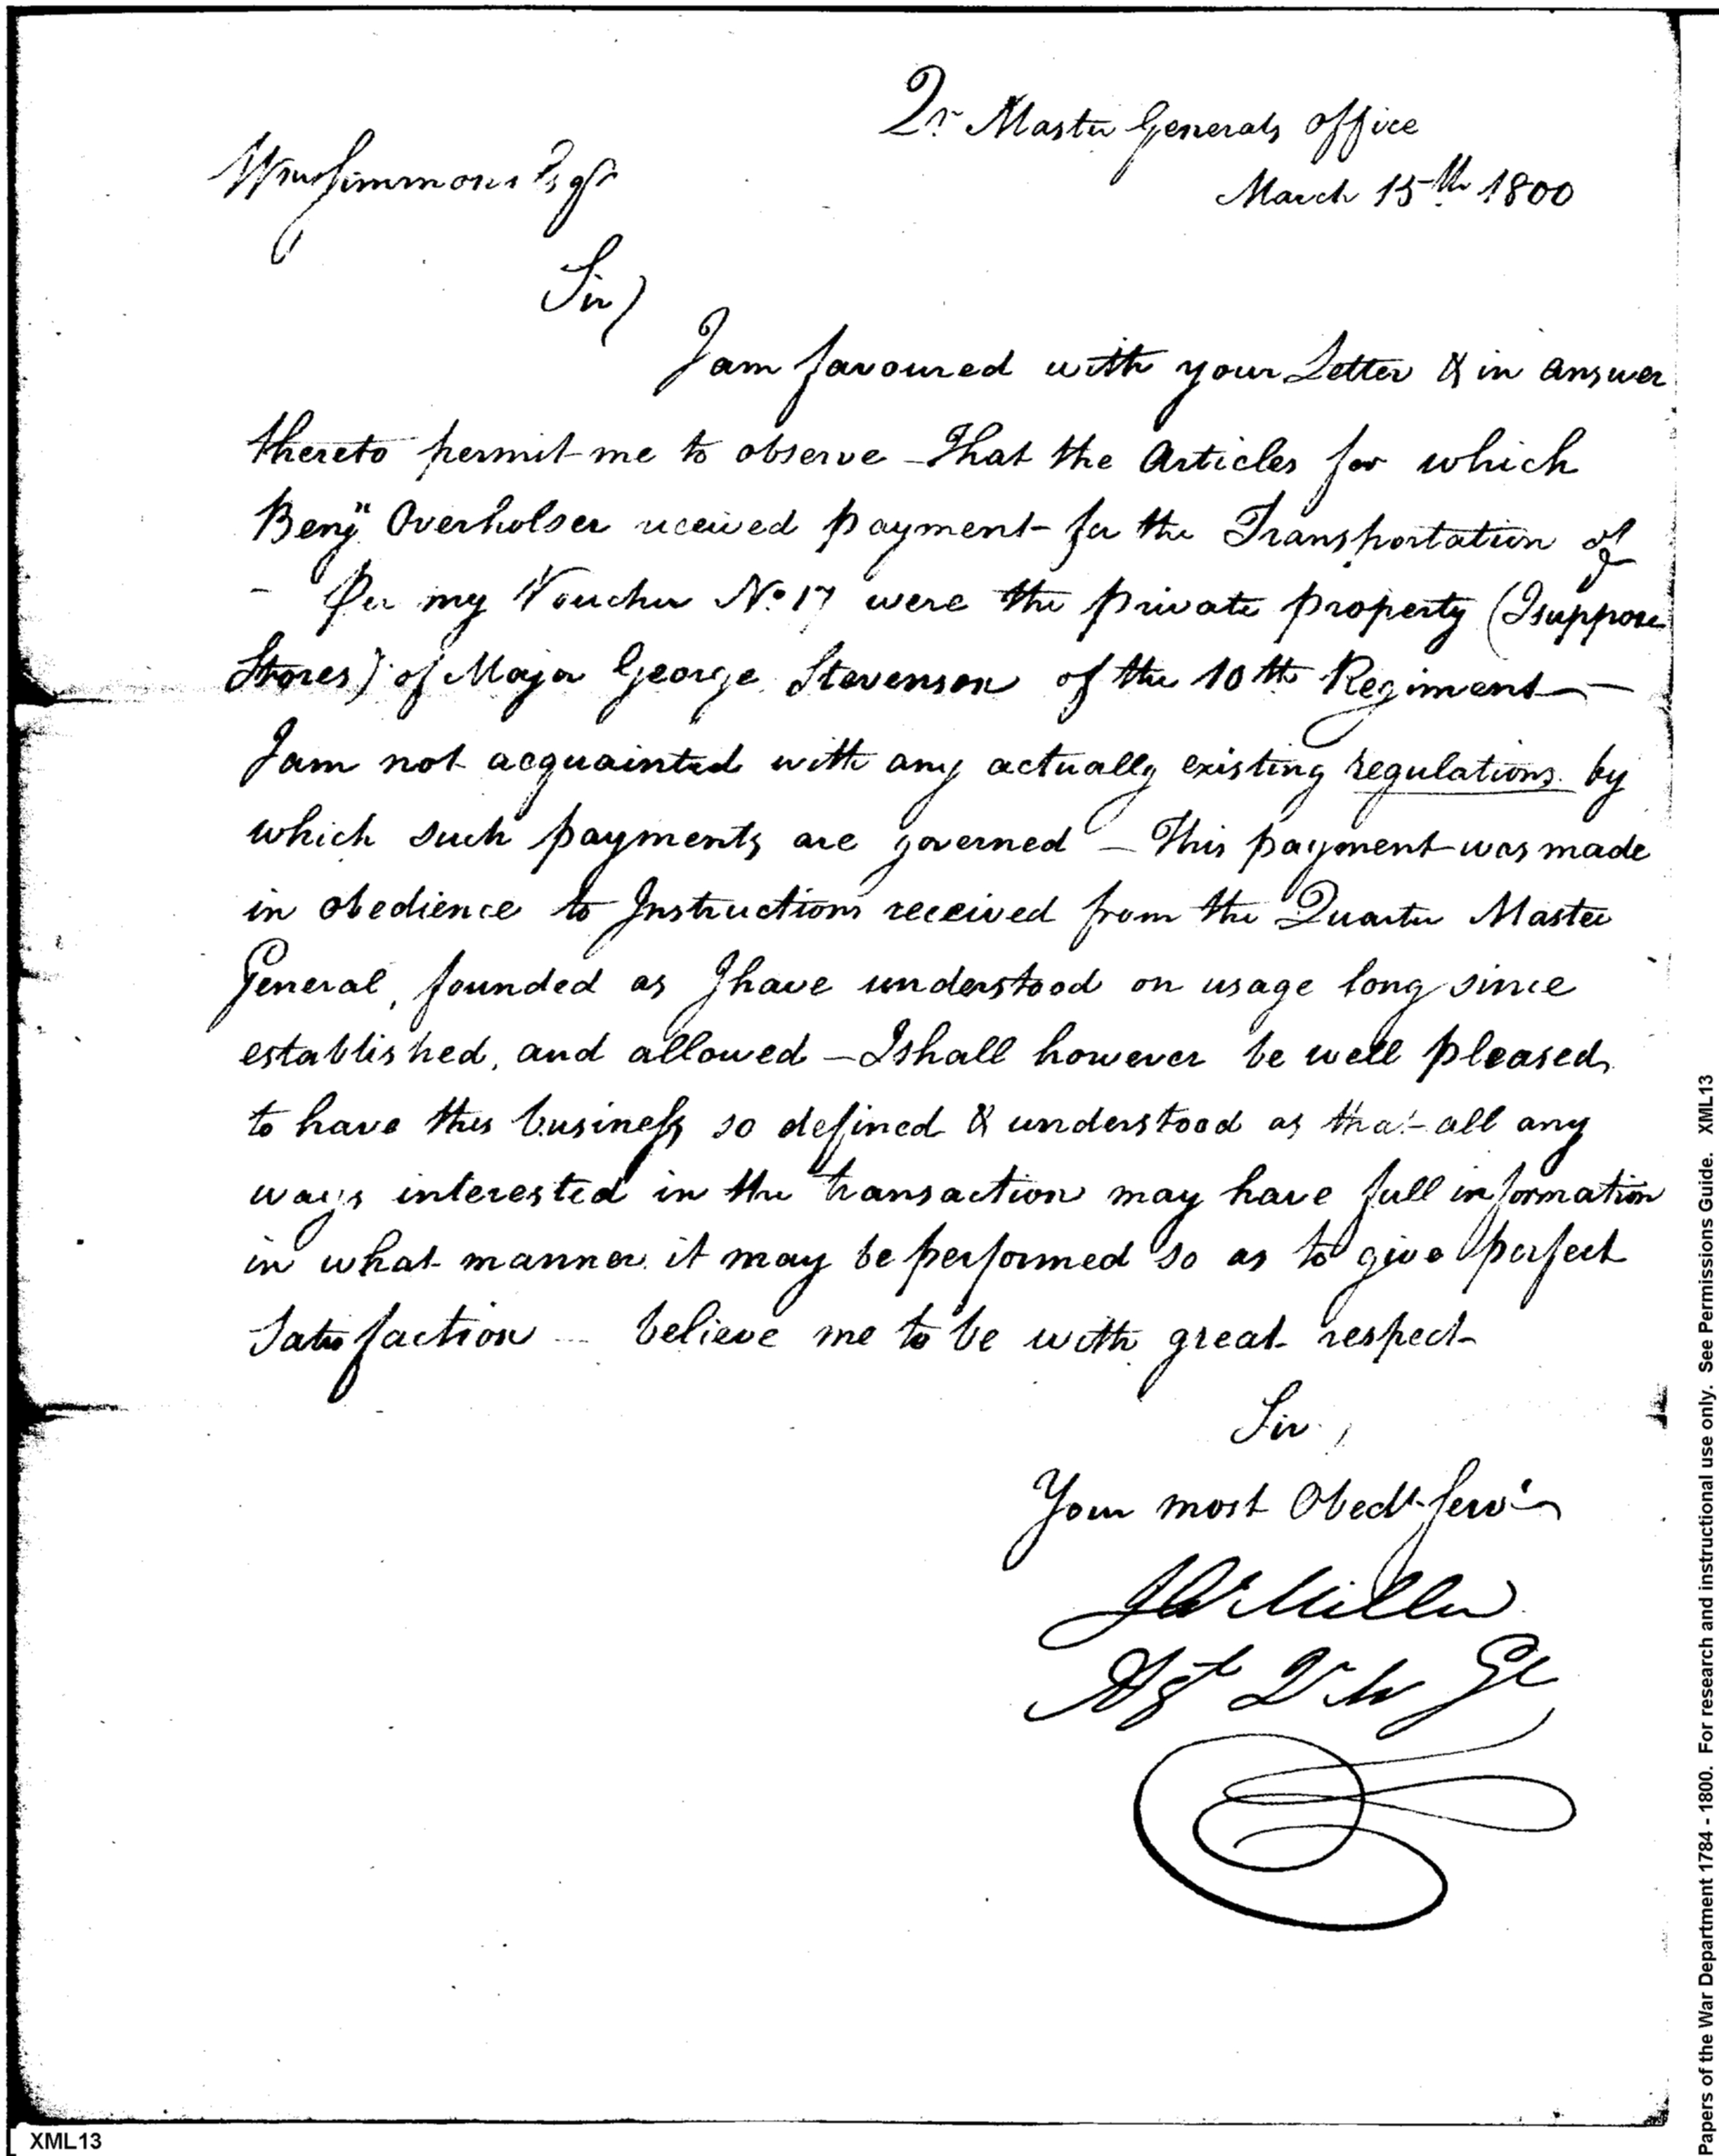 Qr Master Generals office
Wm Simmons Esqr
March 15th 1800
Sir)
I am favoured with your Letter & in answer
thereto permit me to observe - That the Articles for which
Benjn Overholser received payment for the Transportation of
- Per my Voucher No 17 were the private property (I suppose
Stores) of Major George Stevenson of the 10th Regiment -
I am not acquainted with any actually existing regulations by
which such payments are governed - This payment was made
in obedience to Instructions received from the Quarter Master
General, founded as I have understood on usage long since
established, and allowed - I shall however be well pleased
to have this business so defined & understood as that all any
ways interested in the transaction may have full information
in what manner it may be performed so as to give perfect
Satisfaction - believe me to be with great respect
Sir,
Your most Obedt Servt
Miller
Ast Q M Gl
XML13
Papers of the War Department 1784 - 1800. For research and instructional use only. See Permissions Guide. XML13